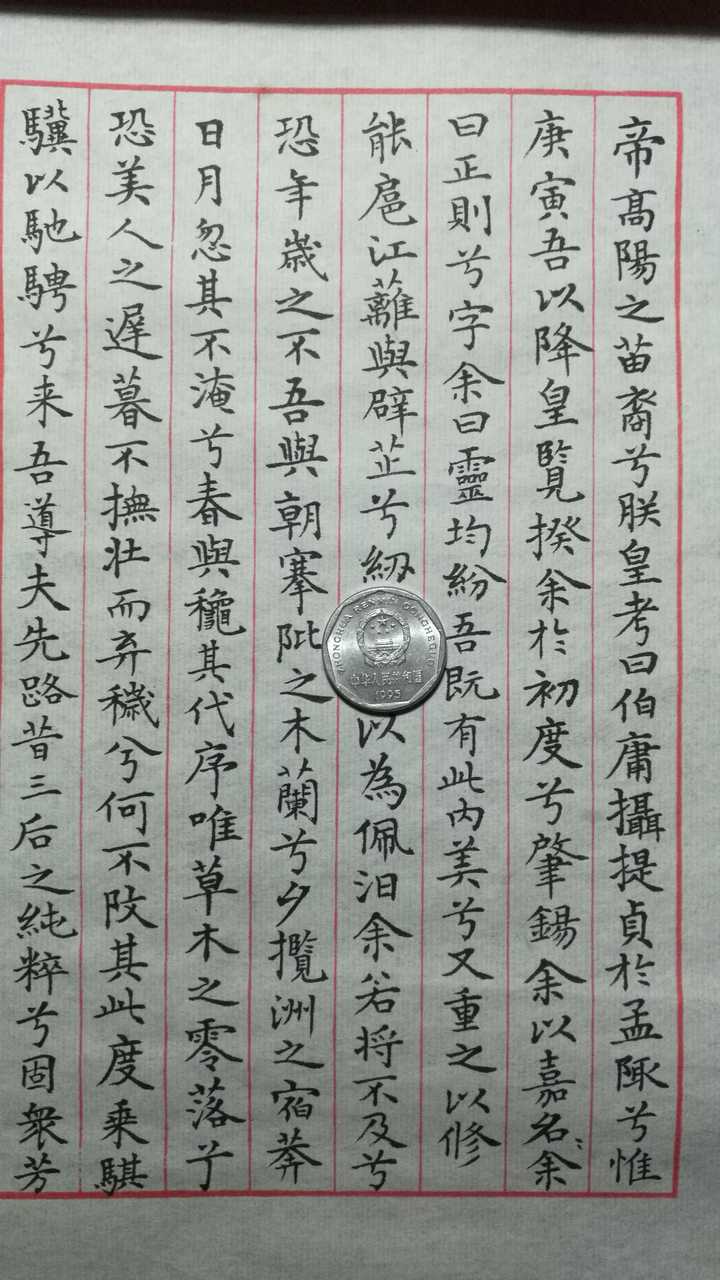 帝高陽之苗裔兮朕皇考曰伯庸攝提貞於孟陬兮惟
庚寅吾以降皇覽揆余於初度兮肇錫余以嘉名余
曰正則兮字余曰靈均紛吾既有此內美兮又重之以修
能扈江蘺與辟芷兮紉以為佩汩余若将不及兮
恐年歲之不吾與朝搴阰之木蘭兮夕攬洲之宿莽
日月忽其不淹兮春與龝其代序唯草木之零落兮
恐美人之遲暮不撫壮而弃穢兮何不改其此度乘騏
驥以馳騁兮来吾導夫先路昔三后之純粹兮固衆芳
ZHONGHUA RENMIN GONGHEGUO
中华人民共和国
1995